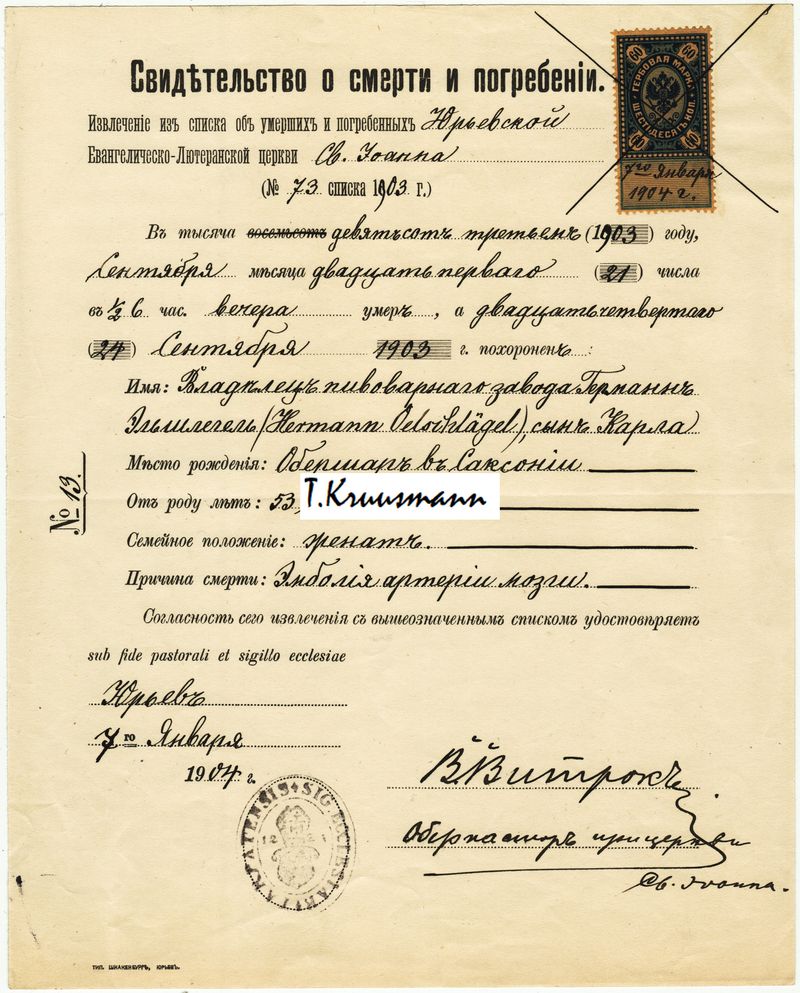 Свидѣтельство о смерти и погребеніи.
60 60
ГЕРБОВАЯ МАРКА
ШЕСТЬДЕСЯТЪ КОП.
60 60
7го Января
1904 г.
Извлеченіе изъ списка объ умершихъ и погребенныхъ Юрьевской
Евангелическо-Лютеранской церкви Св. Іоанна
(№ 73 списка 1903 г.)
Въ тысяча восемьсотъ девятьсотъ третьемъ (1903) году,
Сентября мѣсяца двадцать перваго (21) числа
въ ½ 6 час. вечера умеръ, а двадцать четвертаго
(24) Сентября 1903 г. похороненъ:
Имя: Владѣлецъ пивовареннаго завода Германнъ
Эльшлегель (Hermann Oelschlägel), сынъ Карла
Мѣсто рожденія: Обершаръ въ Саксоніи
Отъ роду лѣтъ: 53,
T.Kruusmann
Семейное положеніе: женатъ.
Причина смерти: Эмболія артеріи мозги.
№ 13.
Согласность сего извлеченія съ вышеозначеннымъ спискомъ удостовѣряетъ
sub fide pastorali et sigillo ecclesiae
Юрьевъ
7го Января
1904 г.
В. Витрокъ
Оберпасторъ при церкви
Св. Іоанна.
SIG. ECCLESIAE TARPATENSIS
ТИП. ШНАКЕНБУРГЪ, ЮРЬЕВЪ.